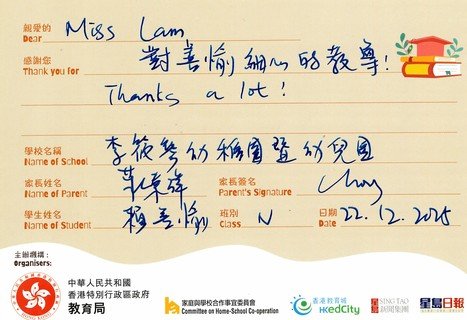 親愛的
Dear Miss Lam,
感謝您
Thank you for 對善愉細心的教導!
Thanks a lot!
學校名稱
Name of School 李筱琴幼稚園暨幼兒園
家長姓名 家長簽名
Name of Parent Parent's Signature
學生姓名 班別 日期
Name of Student 善愉 Class N Date 22.12.2025
主辦機構:
Organisers:
中華人民共和國
香港特別行政區政府
教育局
家庭與學校合作事宜委員會
Committee on Home-School Co-operation
香港教育城
HKedCity
星島 SING TAO
新聞集團
星島日報